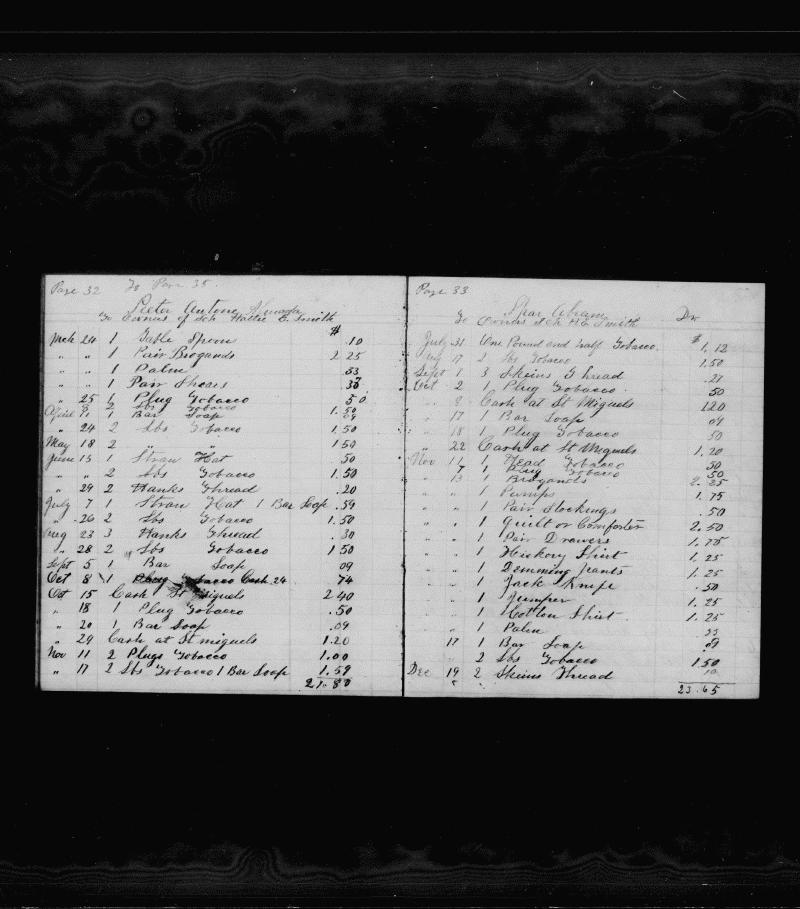 Page 32 To Page 35.
Peeter Antone
To Owners of Sch Hattie E. Smith
$
Mch 24 1 Table Spoon .10
" " 1 Pair Brogands 2 25
" " 1 Palm 53
" " 1 Pair Shears 38
" 25 1 Plug Tobacco 50
April 2 2 Lbs Tobacco 1.50
" 7 1 Bar Soap 09
" 24 2 Lbs Tobacco 1.50
May 18 2 " " 1 50
June 15 1 Straw Hat 50
" " 2 Lbs Tobacco 1.50
" 29 2 Hanks Thread .20
July 7 1 Straw Hat 1 Bar Soap .59
" 26 2 Lbs Tobacco 1.50
Aug 23 3 Hanks Thread .30
" 28 2 Lbs Tobacco 1 50
Sept 5 1 Bar Soap 09
Oct 8 1 Plug Tobacco Cash 24 74
Oct 15 Cash St Miguels 2 40
" 18 1 Plug Tobacco .50
" 20 1 Bar Soap .09
" 29 Cash at St miguels 1.20
Nov 11 2 Plugs Tobacco 1.00
" 17 2 Lbs Tobacco 1 Bar Soap 1.59
21.80
Page 33
Abram
To Owners Sch H.E. Smith Dr
$
July 31 One Pound and half Tobacco. 1.12
Aug 17 2 Lbs Tobacco 1.50
Sept 1 3 Skeins Thread .27
Oct 2 1 Plug Tobacco 50
" 9 Cash at St Miguels 120
" 17 1 Bar Soap 09
" 18 1 Plug Tobacco 50
" 22 Cash at St Miguels 1.20
Nov 1 1 Head Tobacco 50
" 7 1 Plug Tobacco 50
" 13 1 Brogands 2.25
" " 1 Pumps 1.75
" " 1 Pair Stockings .50
" " 1 Quilt or Comforter 2.50
" " 1 Pair Drawers 1.75
" " 1 Hickory Shirt 1.25
" " 1 Demming pants 1.25
" " 1 Jack Knife .50
" " 1 Jumper 1.25
" " 1 Cotton Shirt. 1.25
" " 1 Palm
" 17 1 Bar Soap 09
2 Lbs Tobacco 1.50
Dec 19 2 Skeins Thread
23.65